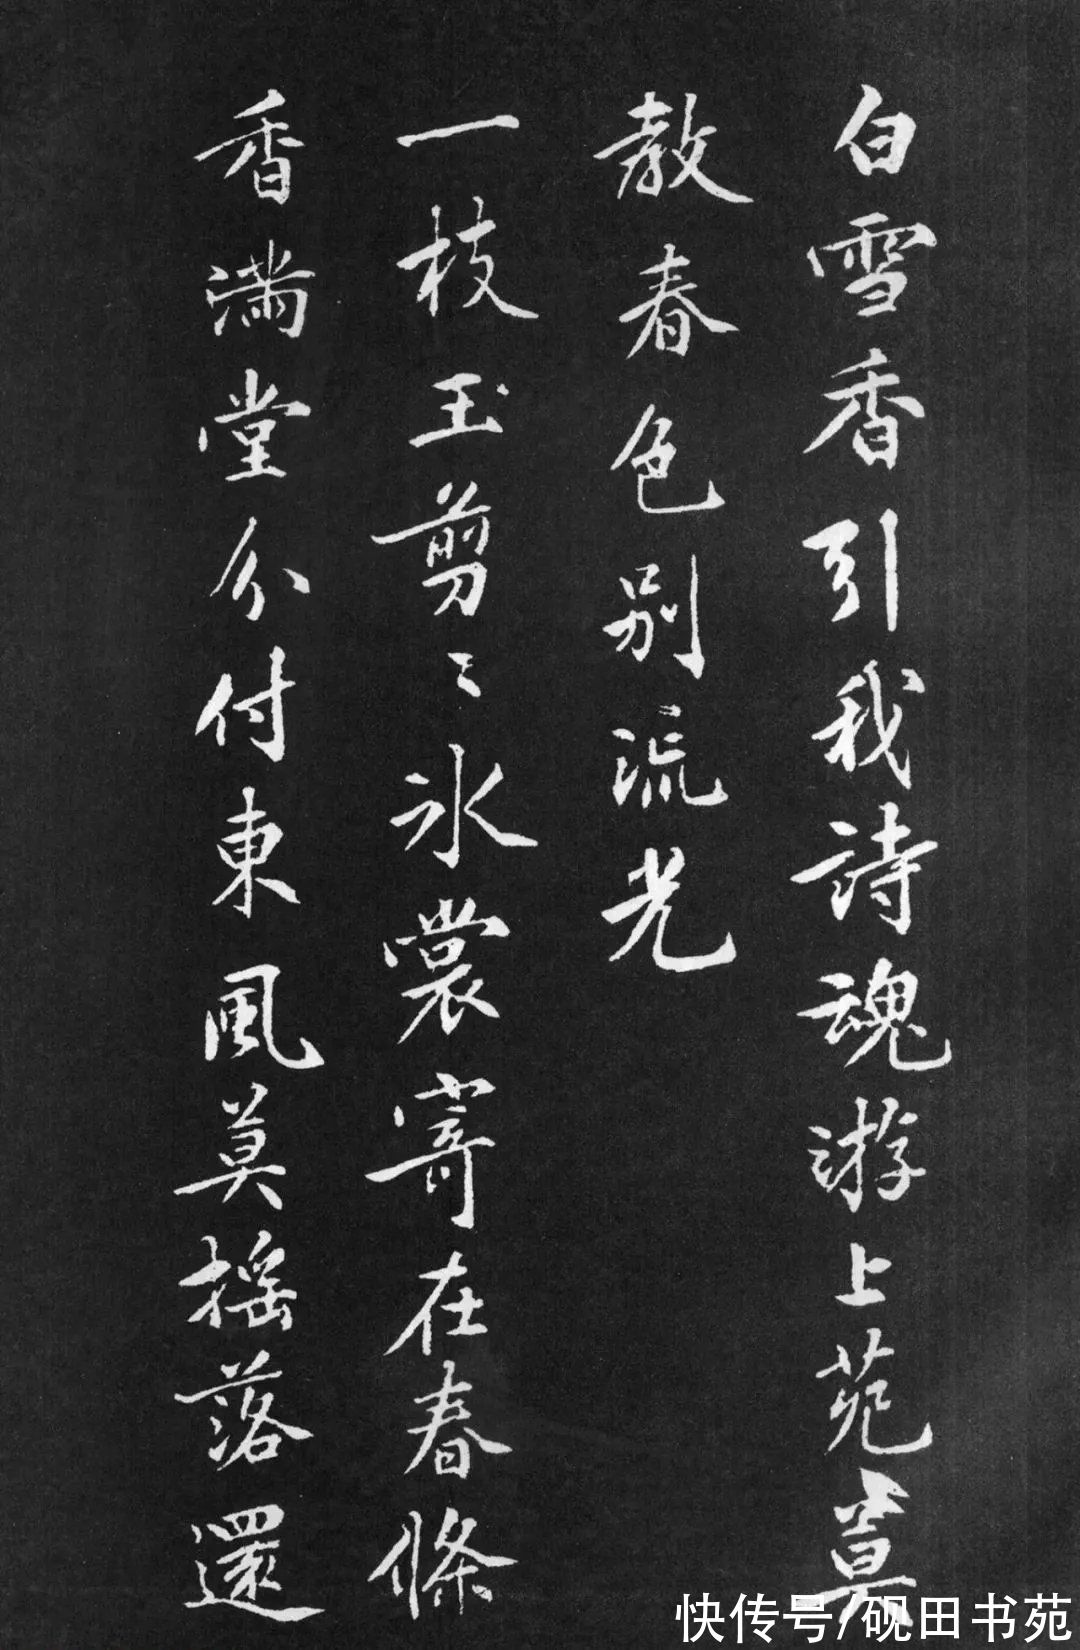 白雪香引我詩魂游上苑莫
教春色別流光
一枝玉剪〻冰裳寄在春條
香滿堂分付東風莫摇落還
快传号/砚田书苑